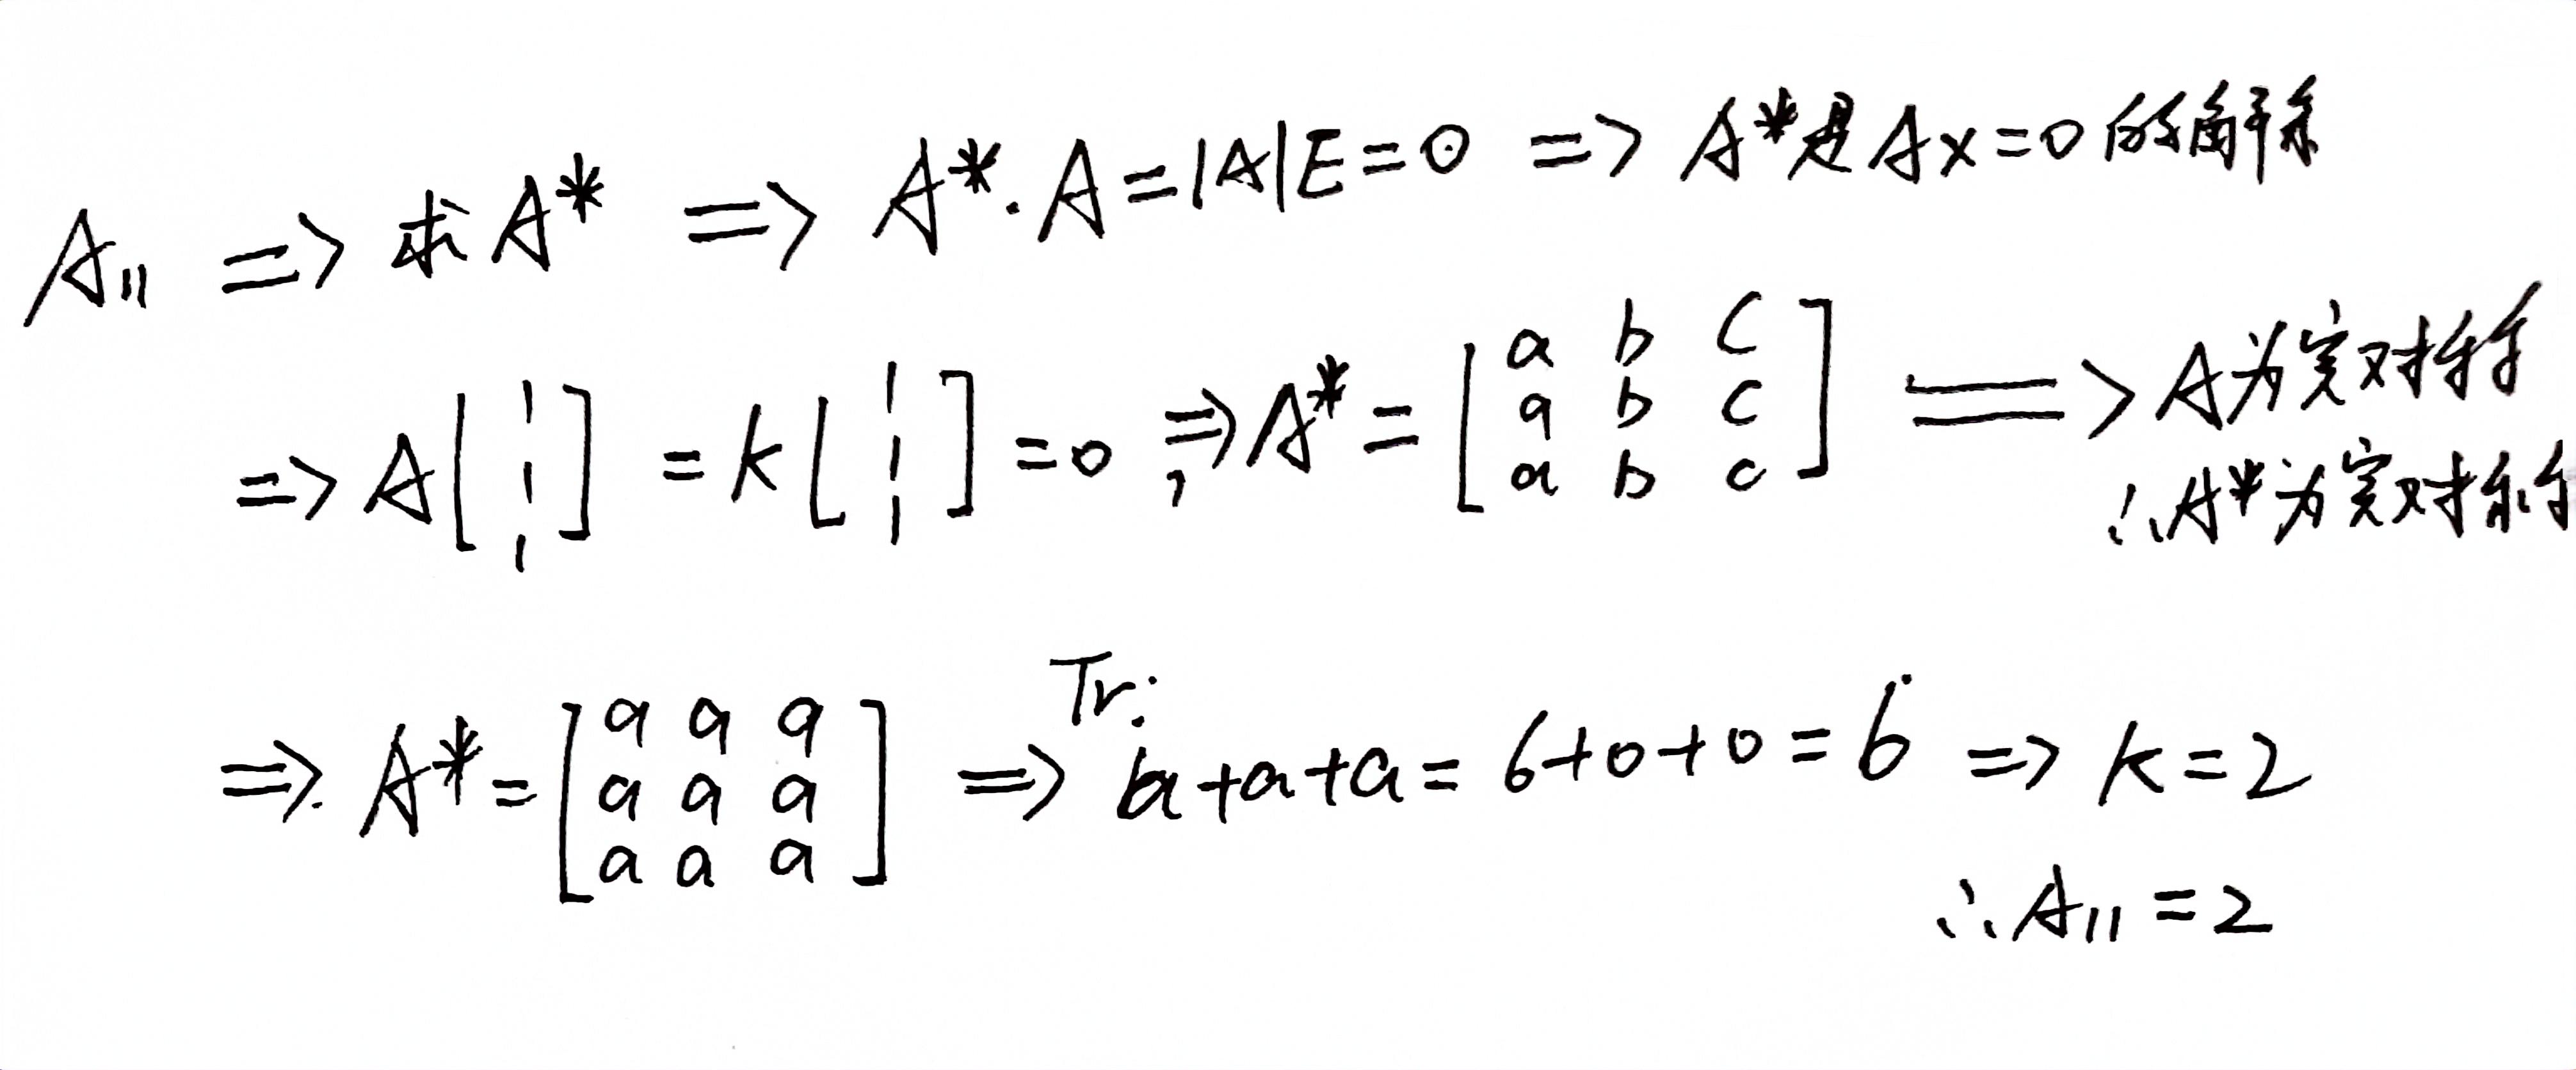 A₁₁ => 求A* => A*·A=|A|E=0 => A*是Ax=0的解系
=> A[1 1 1] = k[1 1 1] =0, => A* = [a b c
a b c
a b c] => A为实对称
∴A*为实对称
=> A* = [a a a
a a a
a a a] => Tr: a+a+a = 6+0+0 = 6 => k=2
∴A₁₁=2